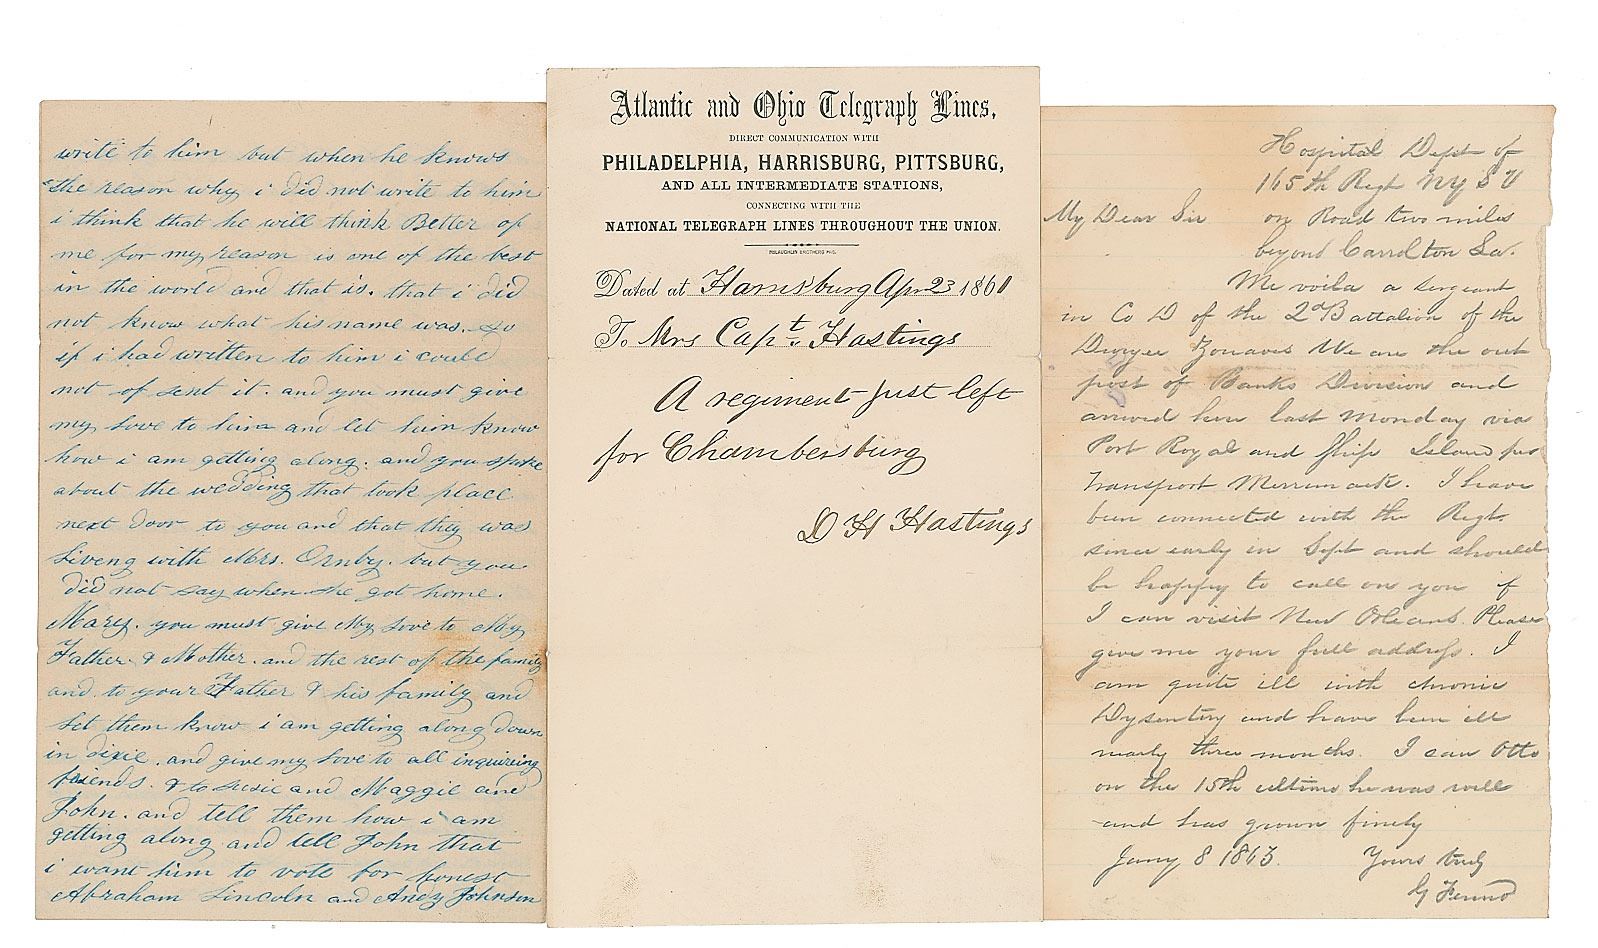 write to him but when he knows
the reason why i did not write to him
i think that he will think Better of
me for my reason is one of the best
in the world and that is. that i did
not know what his name was. so
if i had written to him i could
not of sent it. and you must give
my love to him and let him know
how i am getting along. and you spoke
about the wedding that took place
next door to you and that they was
liveng with Mrs. Ornby. but you
did not say when she got home.
Mary. you must give My love to My
Father & Mother. and the rest of the family
and. to your Father & his family and
let them know i am getting along down
in dixie. and give my love to all inquireing
friends. & to susie and Maggie and
John. and tell them how i am
getting along and tell John that
i want him to vote for honest
Abraham Lincoln and Andy Johnson
Atlantic and Ohio Telegraph Lines,
DIRECT COMMUNICATION WITH
PHILADELPHIA, HARRISBURG, PITTSBURG,
AND ALL INTERMEDIATE STATIONS,
CONNECTING WITH THE
NATIONAL TELEGRAPH LINES THROUGHOUT THE UNION.
McLAUGHLIN BROTHERS PHIL.
Dated at Harrisburg Apr 23 1861
To Mrs Capt. Hastings
A regiment just left
for Chambersburg
D H Hastings
Hospital Dept of
165th Regt NY S V
My Dear Sir on Road two miles
beyond Carrolton La.
Me voila a sergeant
in Co D of the 2d Battalion of the
Duryee Zouaves We are the out
post of Banks Division and
arrived here last Monday via
Port Royal and Ship Island per
Transport Merrimack. I have
been connected with the Regt.
since early in Sept and should
be happy to call on you if
I can visit New Orleans. Please
give me your full address. I
am quite ill with chronic
Dysentery and have been ill
nearly three months. I saw Otto
on the 15th ultimo he was well
and has grown finely
Jany 8 1863. Yours truly
G Fenno